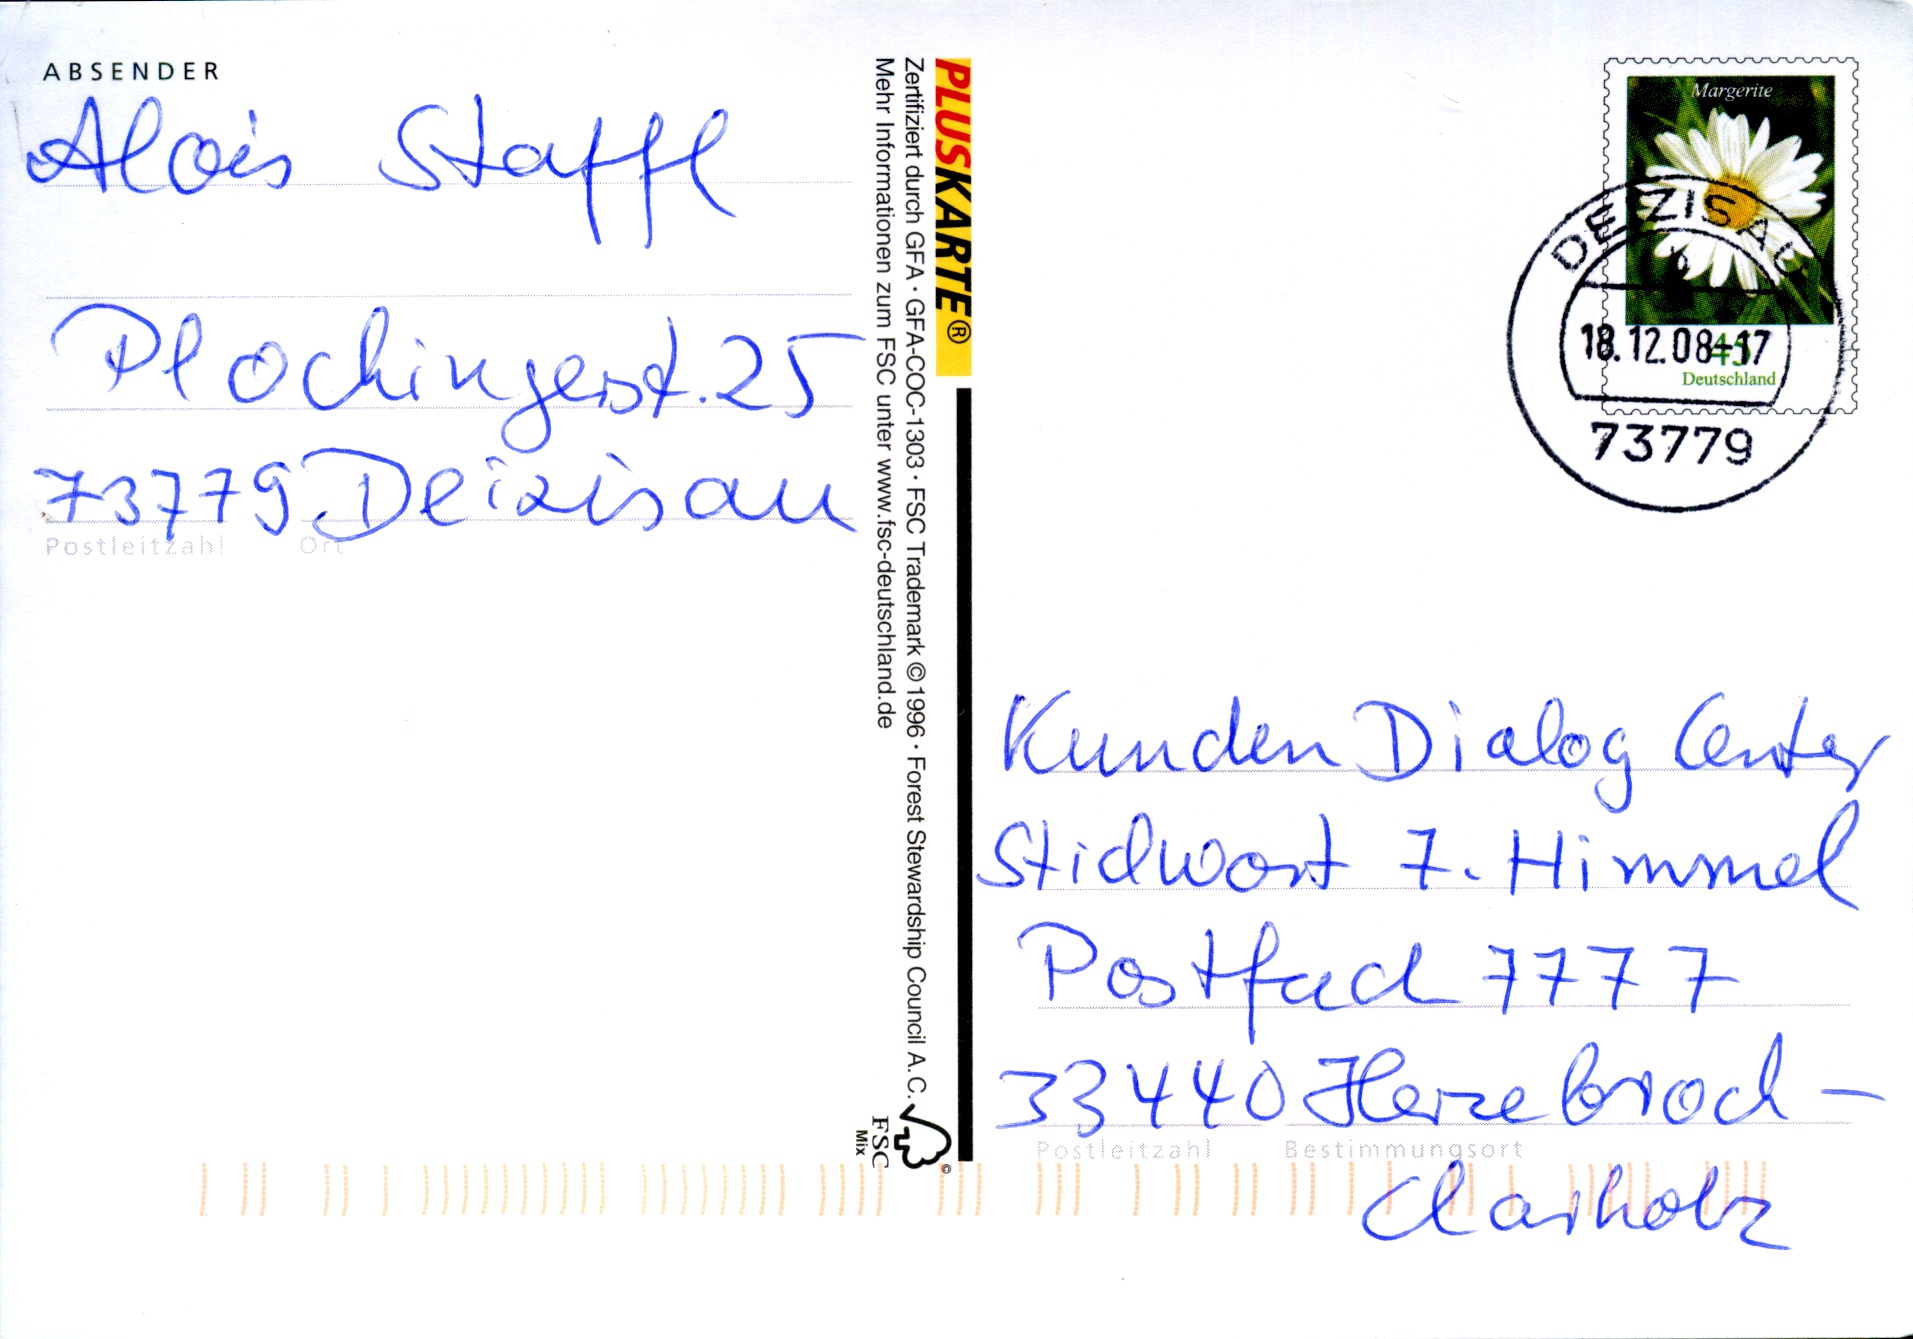 ABSENDER
Alois Staffl
Plochingerst. 25
73779 Deizisau
Postleitzahl Ort
PLUSKARTE®
Zertifiziert durch GFA · GFA-COC-1303 · FSC Trademark © 1996 · Forest Stewardship Council A.C.
Mehr Informationen zum FSC unter www.fsc-deutschland.de
FSC
Mix
©
Margerite
45
Deutschland
DEIZISAU
18.12.08-17
73779
Kunden Dialog Center
Stichwort 7. Himmel
Postfach 7777
33440 Herzebroch-
Postleitzahl Bestimmungsort
Clarholz